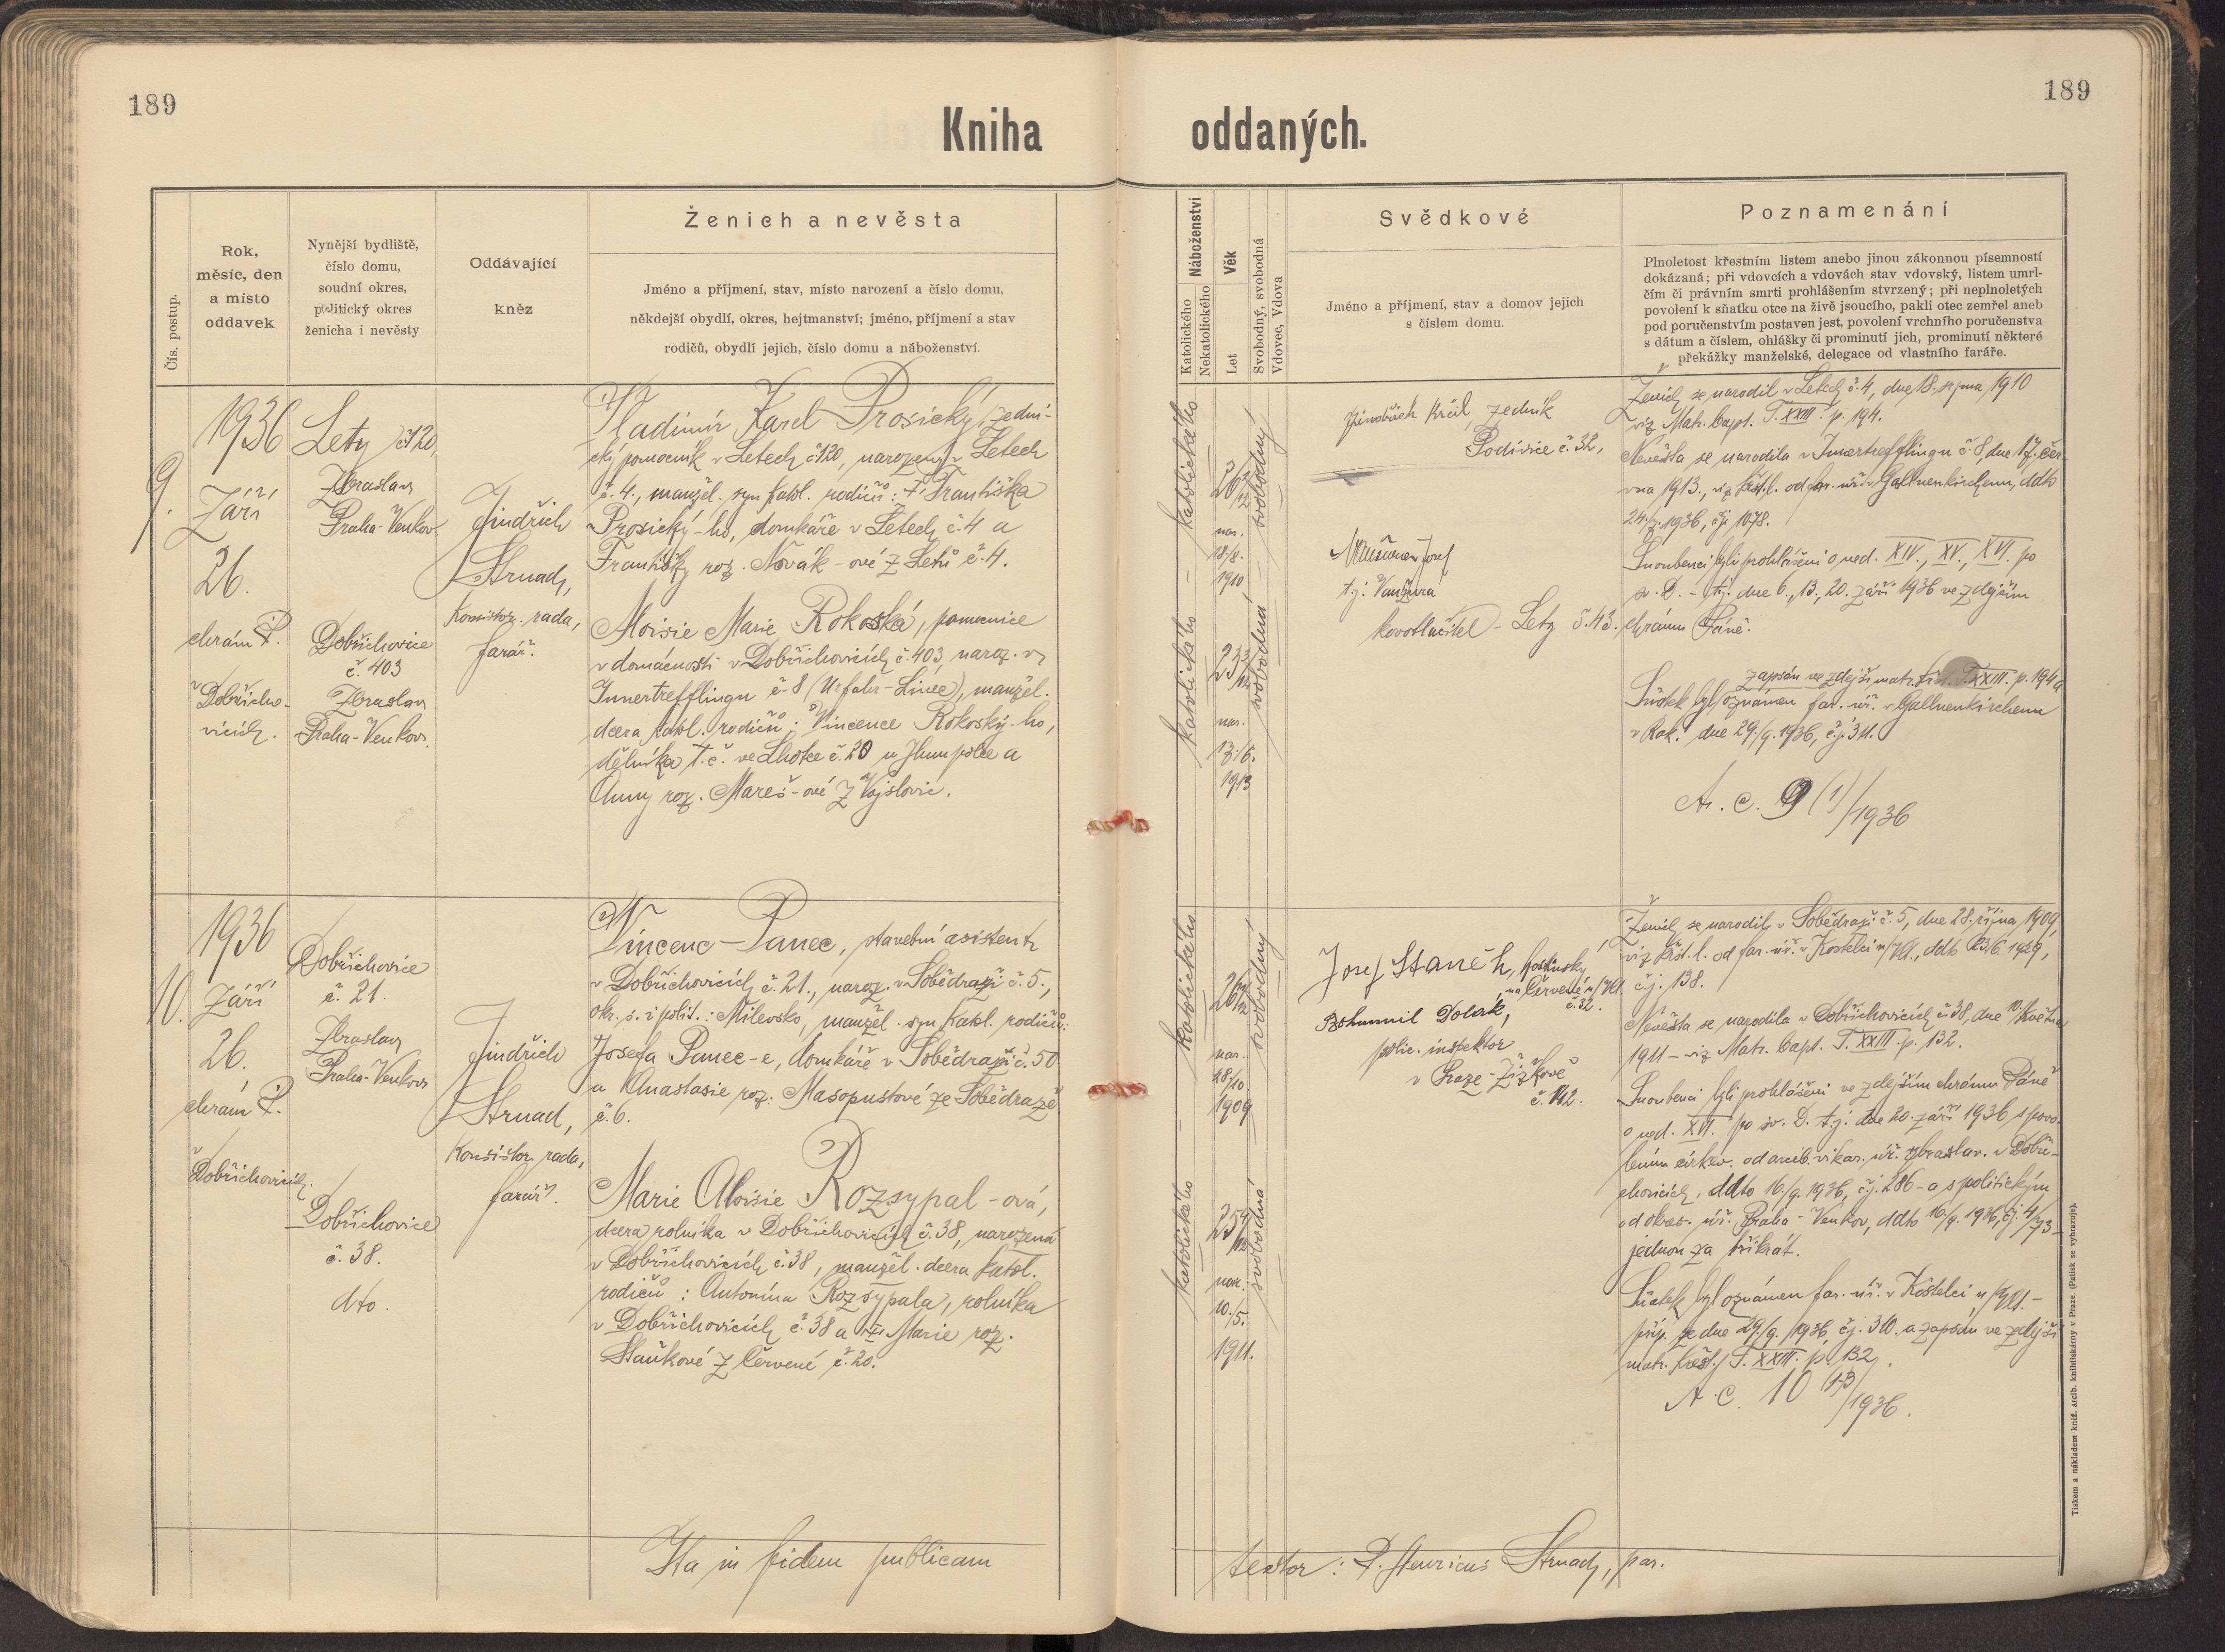 189
189
Kniha
oddaných.
Čís. postup.
Rok,
měsíc, den
a místo
oddavek
Nynější bydliště,
číslo domu,
soudní okres,
politický okres
ženicha i nevěsty
Oddávající
kněz
Ženich a nevěsta
Jméno a příjmení, stav, místo narození a číslo domu,
někdejší obydlí, okres, hejtmanství; jméno, příjmení a stav
rodičů, obydlí jejich, číslo domu a náboženství.
Náboženství
Katolického
Nekatolického
Věk
Let
Svobodný, svobodná
Vdovec, Vdova
Svědkové
Jméno a příjmení, stav a domov jejich
s číslem domu.
Poznamenání
Plnoletost křestním listem anebo jinou zákonnou písemností
dokázaná; při vdovcích a vdovách stav vdovský, listem umrl-
čím či právním smrti prohlášením stvrzený; při neplnoletých
povolení k sňatku otce na živě jsoucího, pakli otec zemřel aneb
pod poručenstvím postaven jest, povolení vrchního poručenstva
s dátum a číslem, ohlášky či prominutí jich, prominutí některé
překážky manželské, delegace od vlastního faráře.
9.
1936
Září
26.
chrám P.
v Dobřicho-
vicích.
Lety č. 120,
Zbraslav
Praha-Venkov.
Dobřichovice
č. 403
Zbraslav
Praha-Venkov.
Jindřich
Strnad,
Konsistor. rada,
farář.
Vladimír Karel Prosický, zedni-
cký pomocník v Letech č. 120, narozený v Letech
č. 4., manžel. syn katol. rodičů: † Františka
Prosický-ho, domkáře v Letech č. 4 a
Františky roz. Novák-ové z Letů č. 4.
Aloisie Marie Rokoská, pomocnice
v domácnosti v Dobřichovicích č. 403, naroz. v
Innertrefflingu č. 8 (Urfahr-Linec), manžel.
dcera katol. rodičů: Vincence Rokoský-ho,
dělníka t. č. ve Lhotce č. 20 u Humpolce a
Anny roz. Mareš-ové z Vojslavic.
katolického
svobodný
nar.
18./8.
1910
katolického
svobodná
nar.
17./6.
1913
Jindřich Král, zedník
Podivice č. 32,
t.j. Vanžura
kovotlačitel - Lety č. 43.
Ženich se narodil v Letech č. 4, dne 18. srpna 1910
viz Matr. bapt. T. XXIII. p. 194.
Nevěsta se narodila v Innertrefflingu č. 8 dne 17. čer-
vna 1913., viz křest. l. od far. úř. v Gallneukirchenu, ddto
1936, čj. 1078.
Snoubenci byli prohlášeni o ned. XIV., XV., XVI. po
sv. D. - tj. dne 6., 13., 20. září 1936 ve zdejším
chrámu Páně.
zapsán ve zdejší matr. T. XXIII. p. 194 a
Sňatek byl oznámen far. úř. v Gallneukirchenu
v Rak. dne 29./9. 1936, č.j. 311.
A. C. 9 (1)/1936
10.
1936
Září
26.
chrám P.
v Dobřichovicích.
Dobřichovice
č. 21.
Zbraslav
Praha-Venkov
Dobřichovice
č. 38.
dto.
Jindřich
Strnad,
Konsistor. rada,
farář.
Vincenc Panec, stavební asistent
v Dobřichovicích č. 21., naroz. v Sobědraži č. 5.,
okr. s. i polit.: Milevsko, manžel. syn katol. rodičů:
Josefa Panec-e, domkáře v Sobědraži č. 50
a Anastasie roz. Masopustové ze Sobědraže
č. 6.
Marie Aloisie Rozsypal-ová,
dcera rolníka v Dobřichovicích č. 38, narozená
v Dobřichovicích č. 38, manžel. dcera katol.
rodičů: Antonína Rozsypala, rolníka
v Dobřichovicích č. 38 a Marie roz.
Staňkové z Červené č. 20.
katolického
svobodný
nar.
28/10.
1909
katolického
svobodná
nar.
10./5.
1911.
Josef Staněk, hostinský
na Červené n/Vlt.
č. 32.
Bohumil Dolák,
polic. inspektor
v Praze-Žižkově
Ženich se narodil v Sobědraži č. 5, dne 28. října 1909,
viz křst. l. od far. úř. v Kostelci n/Vlt., ddto 23./6. 1929,
čj. 138.
Nevěsta se narodila v Dobřichovicích č. 38, dne 10. května
1911 - viz Matr. bapt. T. XXIII. p. 132.
Snoubenci byli prohlášeni ve zdejším chrámu Páně
o ned. XVI. po sv. D. t.j. dne 20. září 1936 s povo-
lením církev. od arcib. vikar. úř. zbraslav. v Dobři-
chovicích, ddto 16./9. 1936, čj. 286 - a s politickým
od okres. úř. Praha-Venkov, ddto 16./9. 1936, čj. 4/73-
jednou za třikrát.
Sňatek byl oznámen far. úř. v Kostelci n/Vlt. -
příp. ze dne 29./9. 1936, čj. 310. a zapsán ve zdejší
matr. křest. T. XXIII. p. 132.
A. C. 10 (1-3)/1936.
Ita in fidem publicam
testor: P. Henricus Strnad, par.
Tiskem a nákladem kníž. arcib. knihtiskárny v Praze. (Patisk se vyhrazuje).